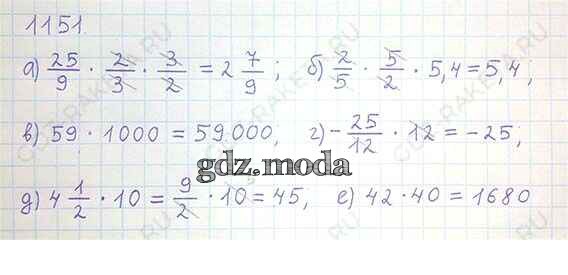 1151.
а) 25/9 · 2/3 · 3/2 = 2 7/9; б) 2/5 · 5/2 · 5,4 = 5,4;
в) 59 · 1000 = 59000, г) - 25/12 · 12 = -25;
gdz.moda
д) 4 1/2 · 10 = 9/2 · 10 = 45, е) 42 · 40 = 1680